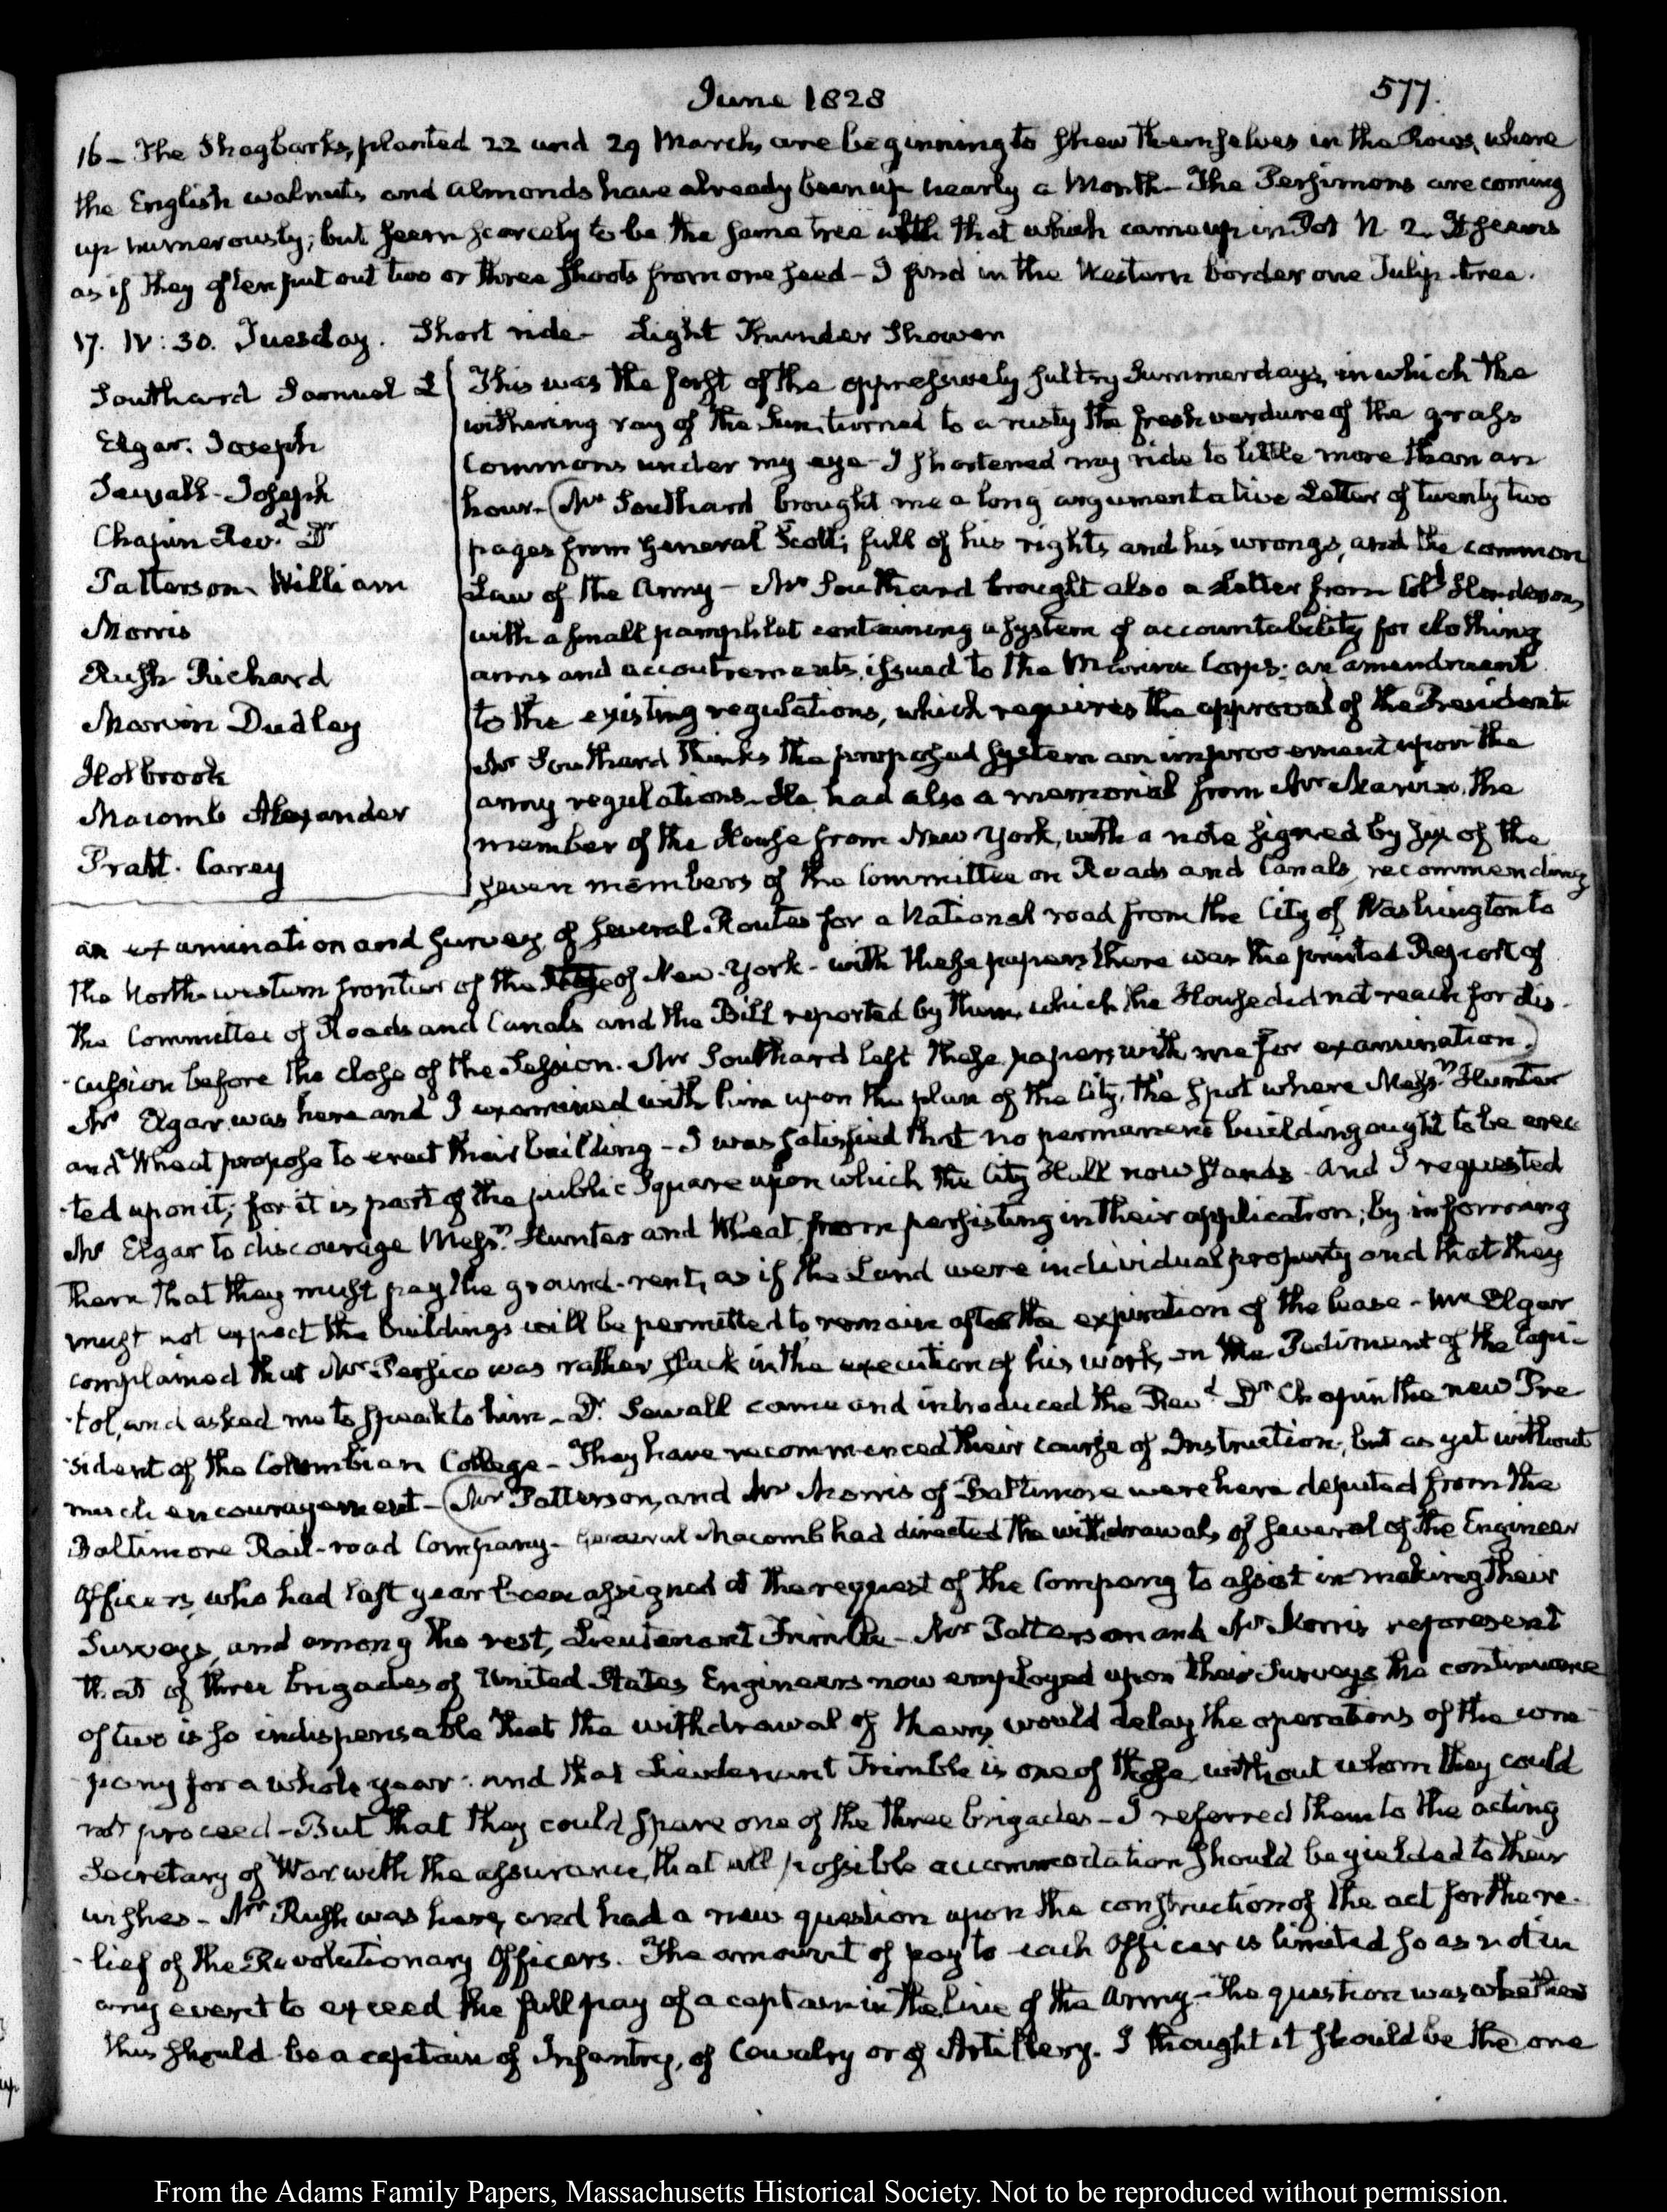 June 1828
577.
16 – The Shagbarks, planted 22 and 29 March, are beginning to shew themselves in the Rows, where
the English walnuts and almonds have already been up nearly a Month – The Persimons are coming
up numerously; but seem scarcely to be the same tree with that which came up in Pot N. 2. It seems
as if they often put out two or three shoots from one seed – I find in the Western border one Tulip-tree.
17. IV: 30. Tuesday. Short ride – Light Thunder Shower
Southard Samuel L
Elgar. Joseph
Sewall - Joseph
Chapin Revd. Dr
Patterson William
Morris
Rush Richard
Marvin Dudley
Holbrook
Macomb Alexander
Pratt. Carey
This was the first of the oppressively sultry Summer days, in which the
withering ray of the Sun, turned to a rusty the fresh verdure of the grass
Commons under my eye – I shortened my ride to little more than an
hour – (Mr Southard brought me a long argumentative Letter of twenty two
pages from General Scott; full of his rights and his wrongs, and the common
Law of the Army – Mr Southard brought also a Letter from Coll Henderson,
with a small pamphlet containing a system of accountability for clothing
arms and accoutrements, issued to the Marine Corps; an amendment
to the existing regulations, which requires the approval of the President
Mr Southard thinks the proposed system an improvement upon the
army regulations – He had also a memorial from Mr Marvin, the
member of the House from New York, with a note signed by six of the
seven members of the Committee on Roads and Canals, recommending
an examination and survey of several Routes for a National road from the City of Washington to
the North-western frontier of the State of New-York – with these papers there was the printed Report of
the Committee of Roads and Canals and the Bill reported by them, which the House did not reach for dis-
-cussion before the close of the Session. Mr Southard left these papers with me for examination.)
Mr Elgar was here and I examined with him upon the plan of the City, the spot where Messrs. Hunter
and Wheat propose to erect their building – I was satisfied that no permanent building ought to be erec
-ted upon it; for it is part of the public Square upon which the City Hall now stands – And I requested
Mr Elgar to discourage Messrs. Hunter and Wheat from persisting in their application; by informing
them that they must pay the ground-rent, as if the Land were individual property and that they
must not expect the buildings will be permitted to remain after the expiration of the lease – Mr Elgar
complained that Mr Persico was rather slack in the execution of his work, on the Pediment of the Capi-
-tol, and asked me to speak to him – Dr. Sewall came and introduced the Revd Dr Chapin the new Pre
-sident of the Columbian College – They have recommenced their course of Instruction; but as yet without
much encouragement – (Mr Patterson, and Mr Morris of Baltimore were here deputed from the
Baltimore Rail-road Company – General Macomb had directed the withdrawal, of several of the Engineer
Officers, who had last year been assigned at the request of the Company to assist in making their
Surveys, and among the rest, Lieutenant Trimble – Mr Patterson and Mr Morris represent
that of three brigades of United States Engineers now employed upon their Surveys the continuance
of two is so indispensable that the withdrawal of them, would delay the operations of the com
-pany for a whole year: and that Lieutenant Trimble is one of those without whom they could
not proceed – But that they could spare one of the three brigades – I referred them to the acting
Secretary of War with the assurance, that all possible accommodation should be yielded to their
wishes – Mr Rush was here, and had a new question upon the construction of the act for the re-
-lief of the Revolutionary Officers. The amount of pay to each Officer is limited so as not in
any event to exceed the full pay of a captain in the line of the Army – The question was whether
this should be a captain of Infantry, of Cavalry or of Artillery. I thought it should be the one
From the Adams Family Papers, Massachusetts Historical Society. Not to be reproduced without permission.